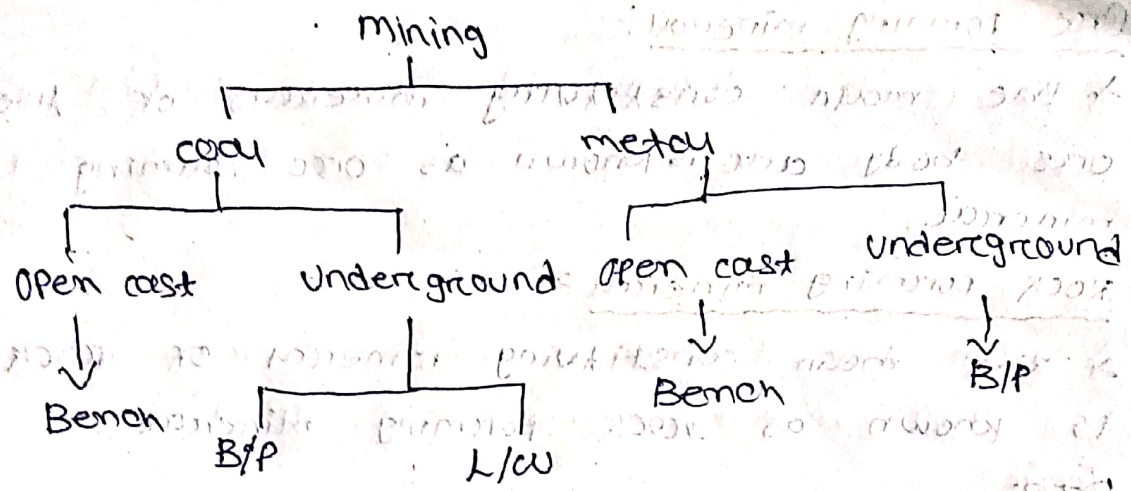 mining
coal metal
open cast underground open cast underground
Bench B/P L/W Bench B/P